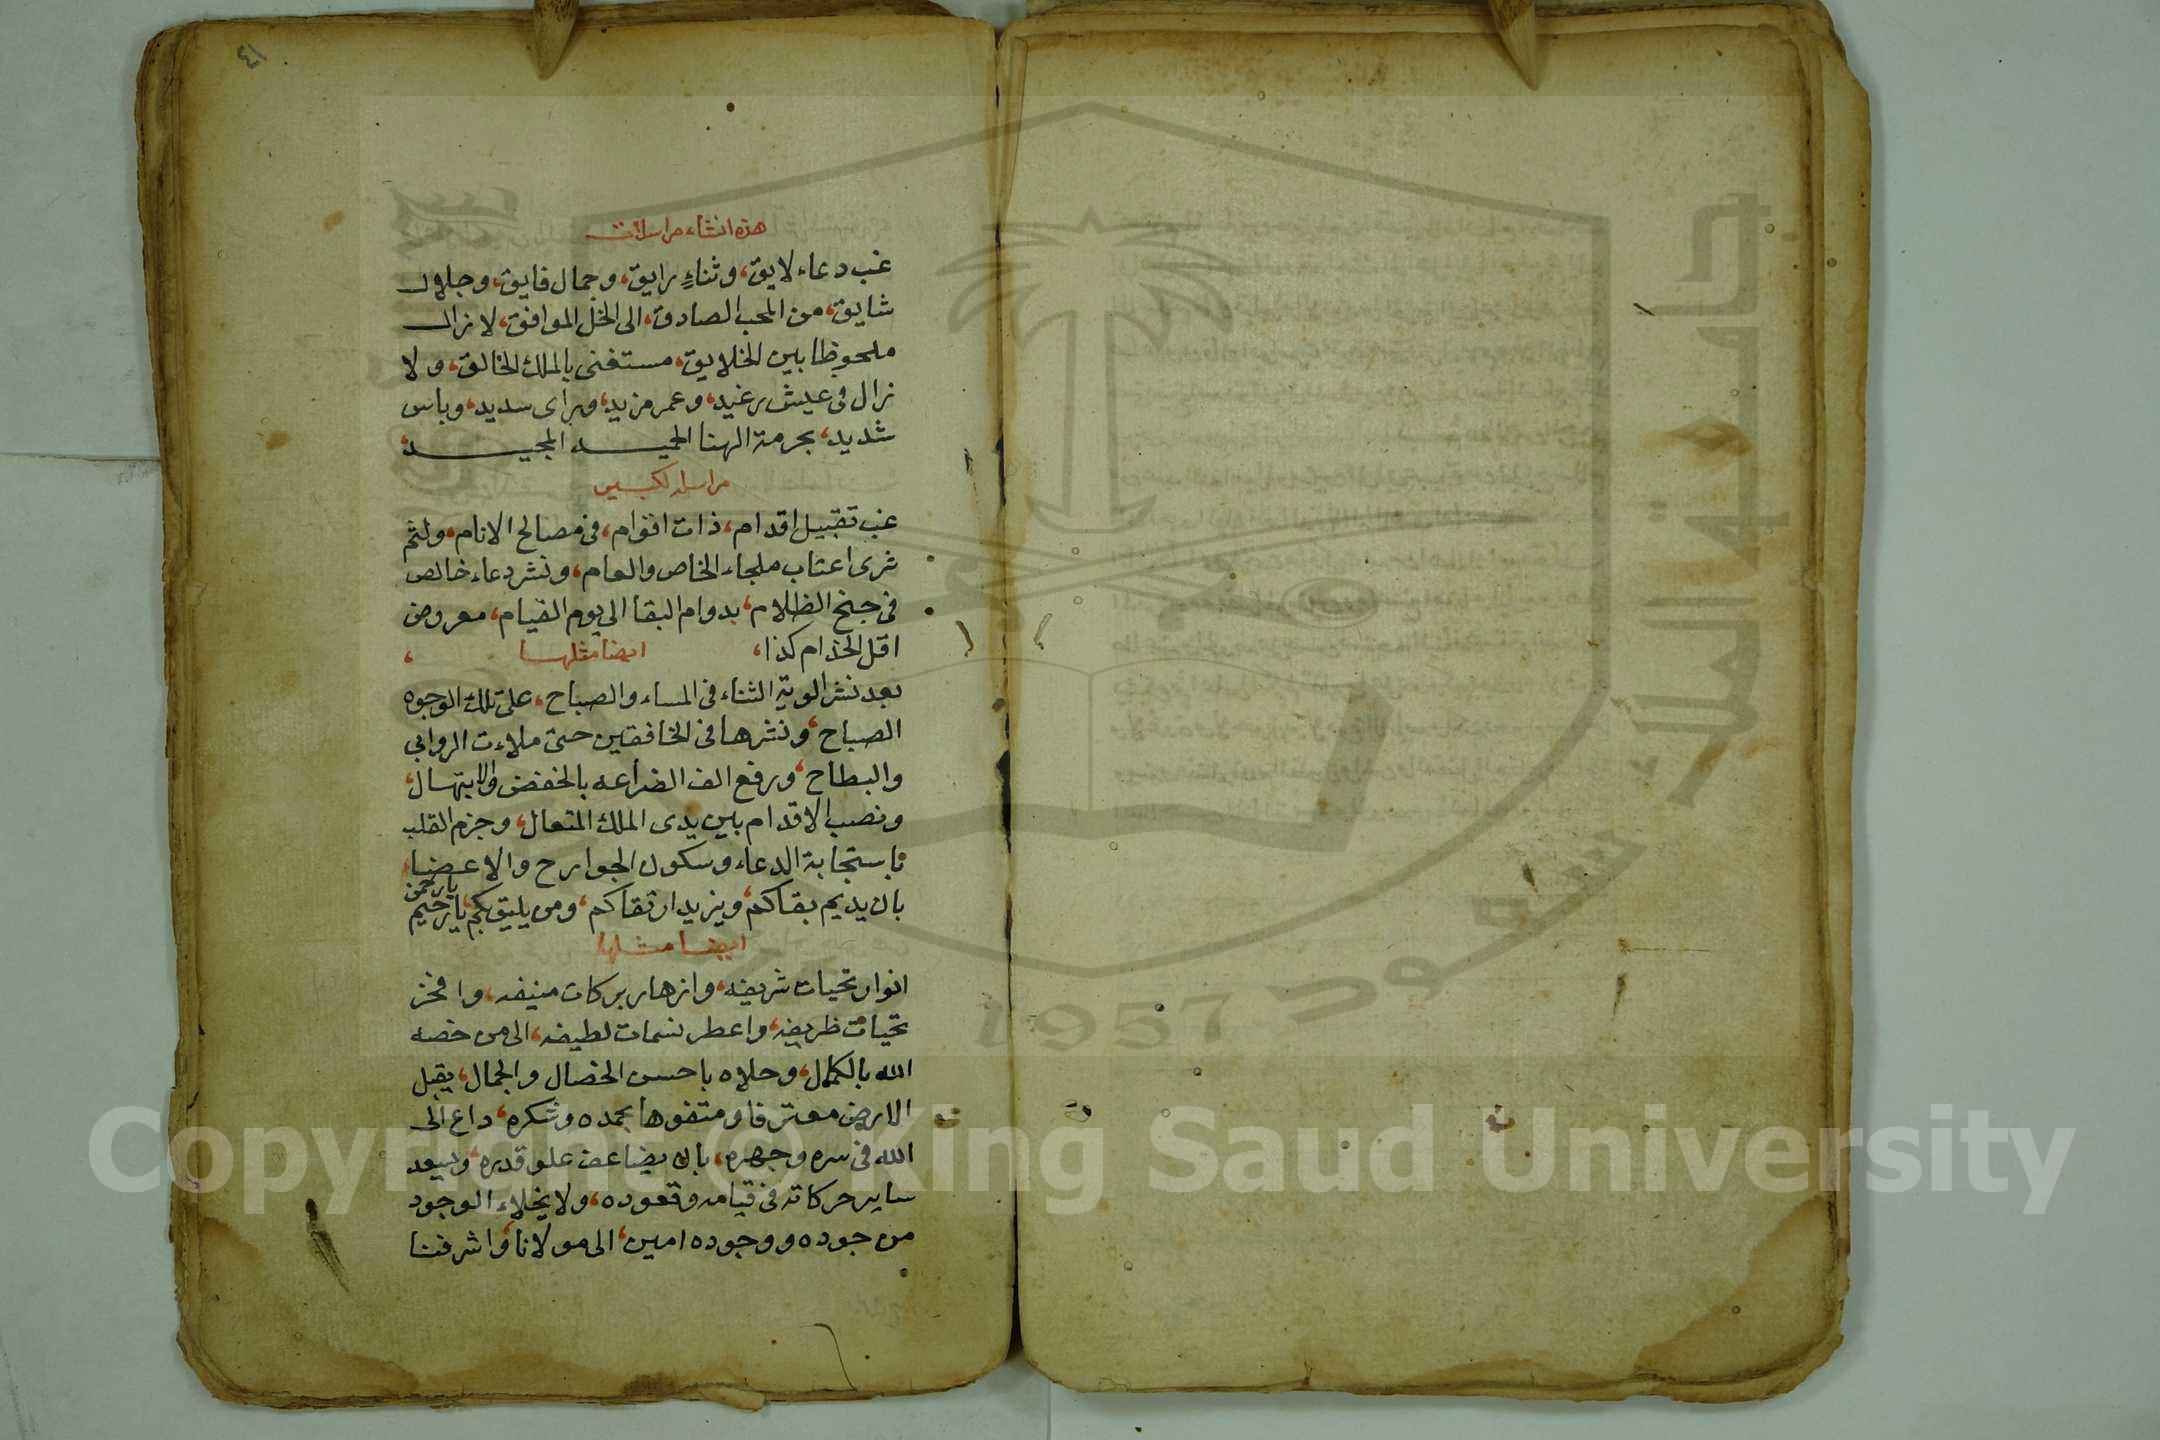 ٤١
هذه انشاء مراسلات
غب دعاء لايق، وثناءٍ رايق، وجمال فايق، وجلال
شايق، من المحب الصادق، الى الخل الموافق، لا زال
ملحوظا بين الخلايق، مستغنى بالملك الخالق، ولا
زال فى عيش رغيد، وعمر مزيد، وراى سديد، وباس
شديد، بحرمة الهنا الحميد المجيد،
مراسله لكبير
غب تقبيل اقدام، ذات اقوام، فى مصالح الانام، ولثم
ثرى اعتاب ملجاء الخاص والعام، ونشر دعاء خالص
فى جنح الظلام، بدوام البقا الى يوم القيام، معروض
اقل الخدام كذا، ايضا مثلها ،
بعد نشر الوية الثناء فى المساء والصباح، على تلك الوجوه
الصباح، ونشرها فى الخافقين حتى ملاءت الروابي
والبطاح، ورفع الف الضراعه بالخفض والابتهال،
ونصب الاقدام بين يدى الملك المتعال، وجزم القلب
باستجابة الدعاء وسكون الجوارح والاعضا،
بان يديم بقاكم، ويزيد ارتقاكم، ومن يليق بكم، يارحيم
يارحمن
ايضا مثلها
انوار تحيات شريفه، وازهار بركات منيفه، وافخر
تحيات ظريفه، واعطر نسمات لطيفه، الى من خصه
الله بالكمال، وحلاه باحسن الخصال والجمال، يقبل
الارض معترفا ومتفوها بحمده وشكره، داع الى
الله فى سره وجهره، بان يضاعف علو قدره، ويسعد
ساير حركاته فى قيامه وقعوده، ولا يخلاء الوجود
من جوده ووجوده امين، الى مولانا، واشرفنا
جامعة الملك سعود
1957
Copyright © King Saud University